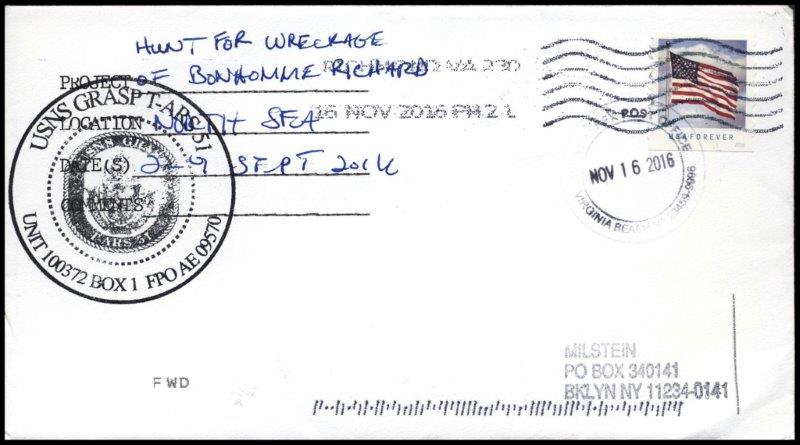 HUNT FOR WRECKAGE
PROJECT OF BONHOMME RICHARD
LOCATION NORTH SEA
DATE(S) 2-9 SEPT 2016
COMMENTS
USNS GRASP T-ARS-51
UNIT 100372 BOX 1 FPO AE 09570
RICHMOND VA 230
16 NOV 2016 PM 2 L
USA FOREVER
NOV 16 2016
VIRGINIA BEACH VA 23459-9996
FWD
MILSTEIN
PO BOX 340141
BKLYN NY 11234-0141